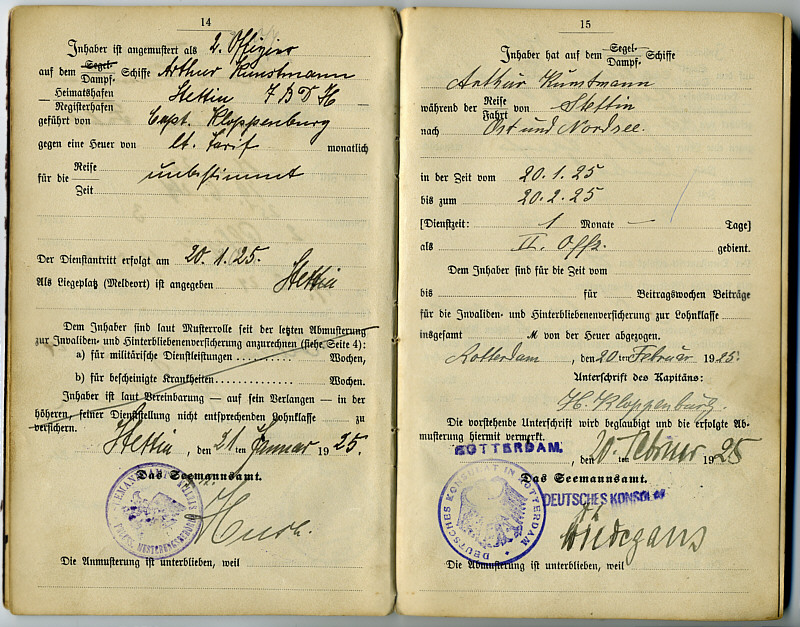 14
Inhaber ist angemustert als 2. Offizier
auf dem Segel- Dampf- Schiffe Arthur Kunstmann
Heimatshafen Stettin 7 B D H
Registerhafen
geführt von Capt. Kloppenburg
gegen eine Heuer von lt. Tarif monatlich
für die Reise Zeit unbestimmt
Der Dienstantritt erfolgt am 20.1.25.
Als Liegeplatz (Meldeort) ist angegeben Stettin
Dem Inhaber sind laut Musterrolle seit der letzten Abmusterung
zur Invaliden- und Hinterbliebenenversicherung anzurechnen (siehe Seite 4):
a) für militärische Dienstleistungen .......... Wochen,
b) für bescheinigte Krankheiten .............. Wochen.
Inhaber ist laut Vereinbarung — auf sein Verlangen — in der
höheren, seiner Dienststellung nicht entsprechenden Lohnklasse zu
versichern.
Stettin, den 21 ten Januar 1925.
Das Seemannsamt.
Die Anmusterung ist unterblieben, weil
15
Inhaber hat auf dem Segel- Dampf- Schiffe
Arthur Kunstmann
während der Reise Fahrt von Stettin
nach Ost und Nordsee.
in der Zeit vom 20.1.25
bis zum 20.2.25
[Dienstzeit: 1 Monate — Tage]
als II. Offz. gedient.
Dem Inhaber sind für die Zeit vom
bis für Beitragswochen Beiträge
für die Invaliden- und Hinterbliebenenversicherung zur Lohnklasse
insgesamt M von der Heuer abgezogen.
Rotterdam, den 20 ten Februar 1925.
Unterschrift des Kapitäns:
H. Kloppenburg.
Die vorstehende Unterschrift wird beglaubigt und die erfolgte Ab-
musterung hiermit vermerkt.
ROTTERDAM, den 20. ten Februar 1925
Das Seemannsamt.
DEUTSCHES KONSULAT
DEUTSCHES KONSULAT IN ROTTERDAM
Die Abmusterung ist unterblieben, weil